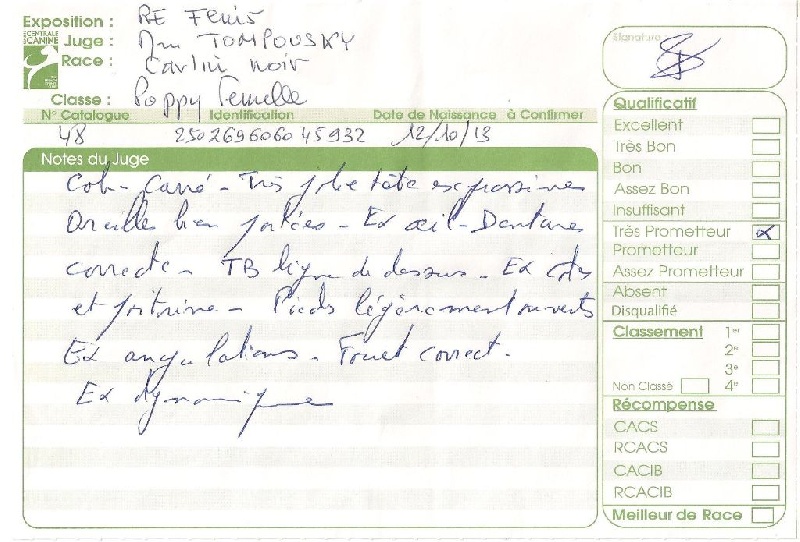 Exposition : RE
CENTRALE
CANINE
Juge : TOMPOUSKY
Race : Carlin noir
Classe : Poppy Femelle
N° Catalogue Identification Date de Naissance à Confirmer
48 250269606045932 12/10/13
Notes du Juge
Cob - Carré - Très jolie tête expressive
Oreilles bien portées - Ex œil - Denture
correcte - TB ligne de dessus - Ex côtes
et poitrine - Pieds légèrement ouverts
Ex angulations - Fouet correct.
Ex dynamique
Signature
Qualificatif
Excellent
Très Bon
Bon
Assez Bon
Insuffisant
Très Prometteur
Prometteur
Assez Prometteur
Absent
Disqualifié
Classement 1er
2e
3e
Non Classé 4e
Récompense
CACS
RCACS
CACIB
RCACIB
Meilleur de Race